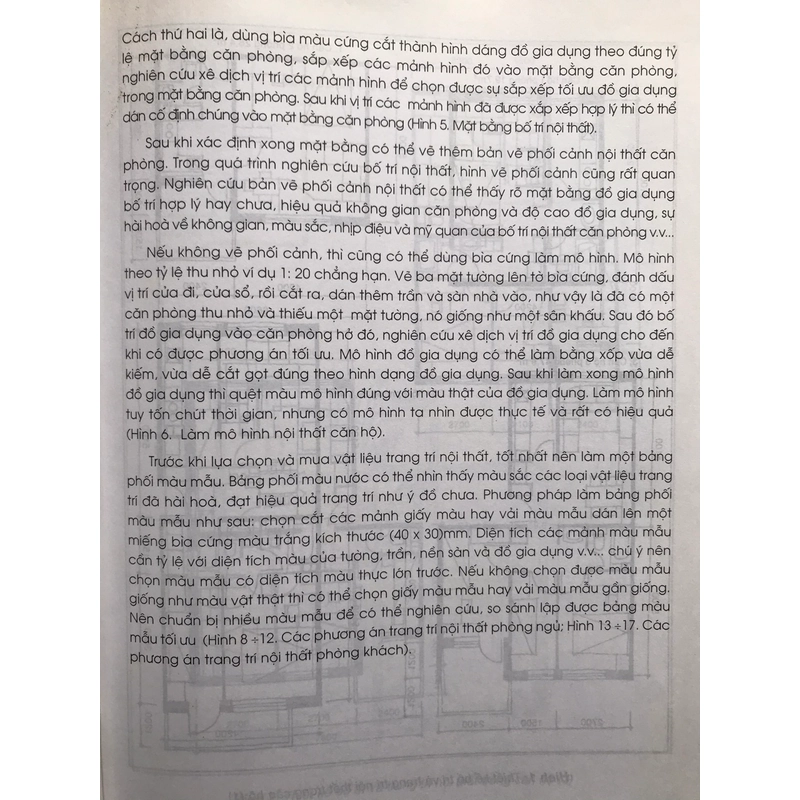 Cách thứ hai là, dùng bìa màu cứng cắt thành hình dáng đồ gia dụng theo đúng tỷ
lệ mặt bằng căn phòng, sắp xếp các mảnh hình đó vào mặt bằng căn phòng,
nghiên cứu xê dịch vị trí các mảnh hình để chọn được sự sắp xếp tối ưu đồ gia dụng
trong mặt bằng căn phòng. Sau khi vị trí các mảnh hình đã được xắp xếp hợp lý thì có thể
dán cố định chúng vào mặt bằng căn phòng (Hình 5. Mặt bằng bố trí nội thất).
Sau khi xác định xong mặt bằng có thể vẽ thêm bản vẽ phối cảnh nội thất căn
phòng. Trong quá trình nghiên cứu bố trí nội thất, hình vẽ phối cảnh cũng rất quan
trọng. Nghiên cứu bản vẽ phối cảnh nội thất có thể thấy rõ mặt bằng đồ gia dụng
bố trí hợp lý hay chưa, hiệu quả không gian căn phòng và độ cao đồ gia dụng, sự
hài hoà về không gian, màu sắc, nhịp điệu và mỹ quan của bố trí nội thất căn phòng v.v...
Nếu không vẽ phối cảnh, thì cũng có thể dùng bìa cứng làm mô hình. Mô hình
theo tỷ lệ thu nhỏ ví dụ 1: 20 chẳng hạn. Vẽ ba mặt tường lên tờ bìa cứng, đánh dấu
vị trí cửa đi, cửa sổ, rồi cắt ra, dán thêm trần và sàn nhà vào, như vậy là đã có một
căn phòng thu nhỏ và thiếu một mặt tường, nó giống như một sân khấu. Sau đó bố
trí đồ gia dụng vào căn phòng hở đó, nghiên cứu xê dịch vị trí đồ gia dụng cho đến
khi có được phương án tối ưu. Mô hình đồ gia dụng có thể làm bằng xốp vừa dễ
kiếm, vừa dễ cắt gọt đúng theo hình dạng đồ gia dụng. Sau khi làm xong mô hình
đồ gia dụng thì quét màu mô hình đúng với màu thật của đồ gia dụng. Làm mô hình
tuy tốn chút thời gian, nhưng có mô hình ta nhìn được thực tế và rất có hiệu quả
(Hình 6. Làm mô hình nội thất căn hộ).
Trước khi lựa chọn và mua vật liệu trang trí nội thất, tốt nhất nên làm một bảng
phối màu mẫu. Bảng phối màu nước có thể nhìn thấy màu sắc các loại vật liệu trang
trí đã hài hoà, đạt hiệu quả trang trí như ý đồ chưa. Phương pháp làm bảng phối
màu mẫu như sau: chọn cắt các mảnh giấy màu hay vải màu mẫu dán lên một
miếng bìa cứng màu trắng kích thước (40 x 30)mm. Diện tích các mảnh màu mẫu
cần tỷ lệ với diện tích màu của tường, trần, nền sàn và đồ gia dụng v.v... chú ý nên
chọn màu mẫu có diện tích màu thực lớn trước. Nếu không chọn được màu mẫu
giống như màu vật thật thì có thể chọn giấy màu mẫu hay vải màu mẫu gần giống.
Nên chuẩn bị nhiều màu mẫu để có thể nghiên cứu, so sánh lập được bảng màu
mẫu tối ưu (Hình 8 ÷12. Các phương án trang trí nội thất phòng ngủ; Hình 13 ÷17. Các
phương án trang trí nội thất phòng khách).